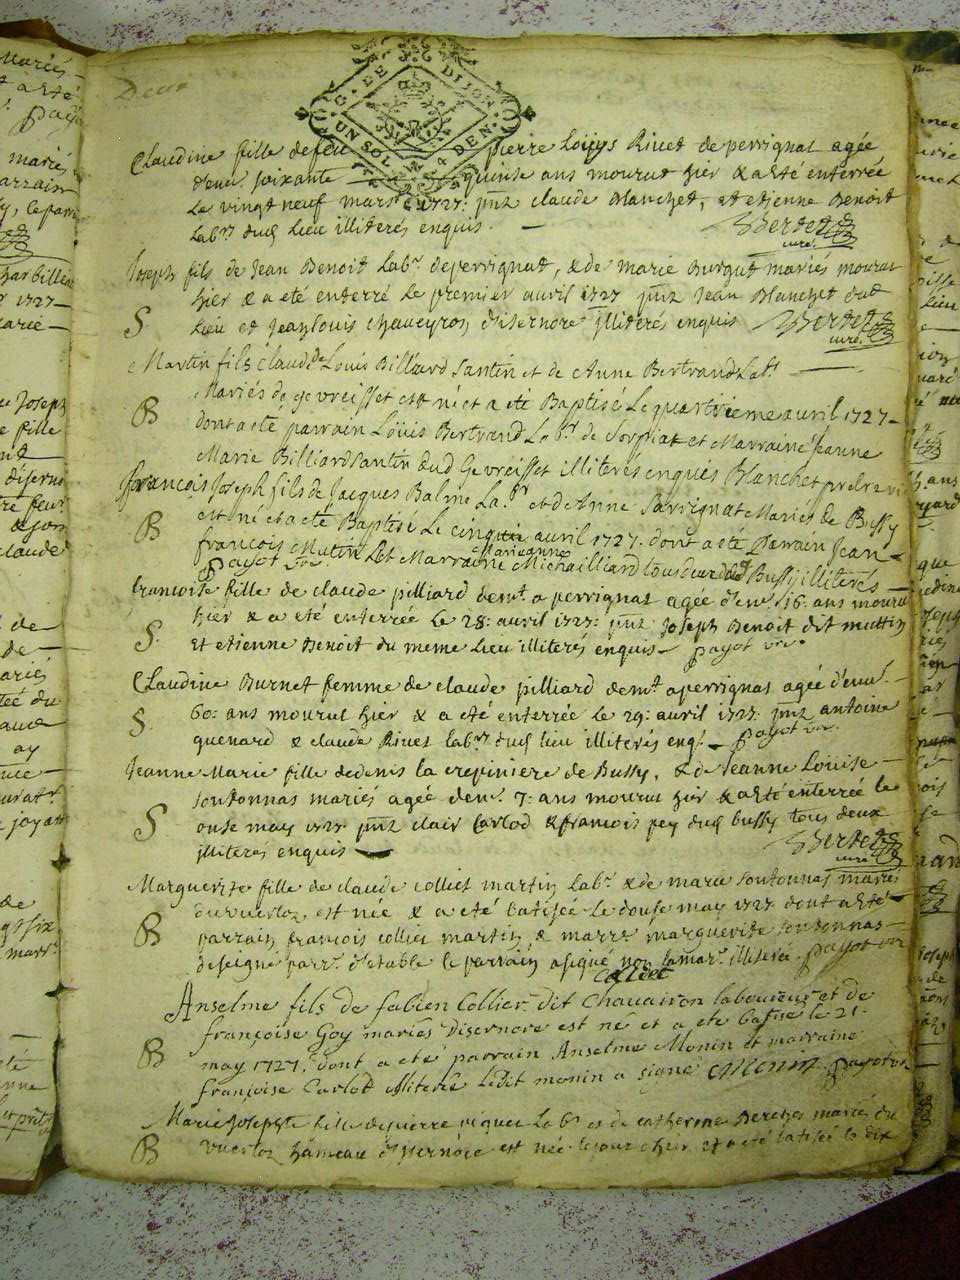 Deux
G. DE DIJON
UN SOL 4 DEN.
Claudine fille defeu pierre Loüys Rivet de perrignat agée
d'enu. soixante quinse ans mourut hier & a été enterrée
Le vingt neuf mars 1727. pnt claude Blanchet, et etienne Benoit
Lab.rs dud lieu illiterés enquis.
Berdet
curé.
Joseph fils de Jean Benoit Lab.r deperrignat, & de marie Burgat mariés mourut
hier & a été enterré Le premier avril 1727 pnt Jean Blanchet dud
S
Lieu et Jean louis chaveyron d'isernore illiterés enquis
Berdet
curé.
Martin fils claud.de Louis Billiard Santin et de Anne Bertrand Lab.rs
Mariés de gevreisset est né et a eté Baptisé Le quatrieme avril 1727
B
dont a eté parrain Loüis Bertrand Lab.r de Sorpiat et Marraine Jeanne
Marie Billiard Santin dud Gevreisset illiterés enquis Blanchet pretre vic
françois Joseph fils de Jacques Balme La.br et de Anne Sarrignat Mariés de Bussy
B
est né et a eté Baptisé Le cinq avril 1727. dont a eté Parrain Jean
françois Mutin Lab.r et Marraine Marieanne Michailliard tous deux de Bussy illiterés
payot vre
francoise fille de claude pilliard dem.t a perrignat agée d'enu. 16. ans mourut
hier & a eté enterrée le 28. avril 1727. pnt Joseph Benoit dit muttin
S.
et etienne Benoit du meme Lieu illiterés enquis payot vre.
Claudine Burnet femme de claude pilliard dem.t a perrignat agée d'enu.
S.
60. ans mourut hier & a eté enterrée le 29. avril 1727. pnt antoine
quenard & claude Rivet lab.rs dud lieu illiterés enq. payot vre.
Jeanne Marie fille de denis la crepiniere de Bussy, & de Jeanne Louise
sondonnas mariés agée denu. 7. ans mourut hier & a eté enterrée le
S
onse may 1727 pnt clair Carlod & francois pey dud bussy tous deux
illiterés enquis
Berdet
curé
Marguerite fille de claude colliet martin Lab.r & de marie sondonnas mariés
du est née & a eté batisée le douse may 1727 dont a eté
B
parrain francois collier martin & marr. marguerite sondonnas
parr. d'etable le parrain asigné non la mar. illiterée payot vre
Collet
Anselme fils de fabien Collier dit Chavairon laboureur et de
françoise Goy mariés Disernore est né et a eté batisé le 21.
B
may 1727. dont a eté parrain Anselme Monin et marraine
françoise Carlod illiterée ledit monin a signé Monin payot vre
Marie Josephte fille de pierre piquet Lab.r et de catherine Berchet mariés du
B
hameau d'ysernore est née le jour d'hier et a eté batisée le dix